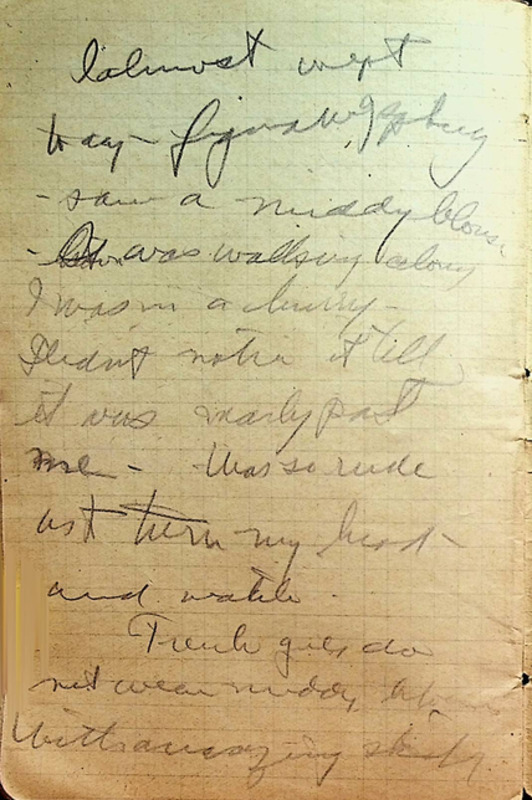 I almost wept
to day -
- saw a middy blouse
- was walking along
I was in a hurry -
I didn't notice it till
it was nearly past
me - Was so rude
as t turn my head -
and watch.
French girls do
not wear middy blouses
With an amazing